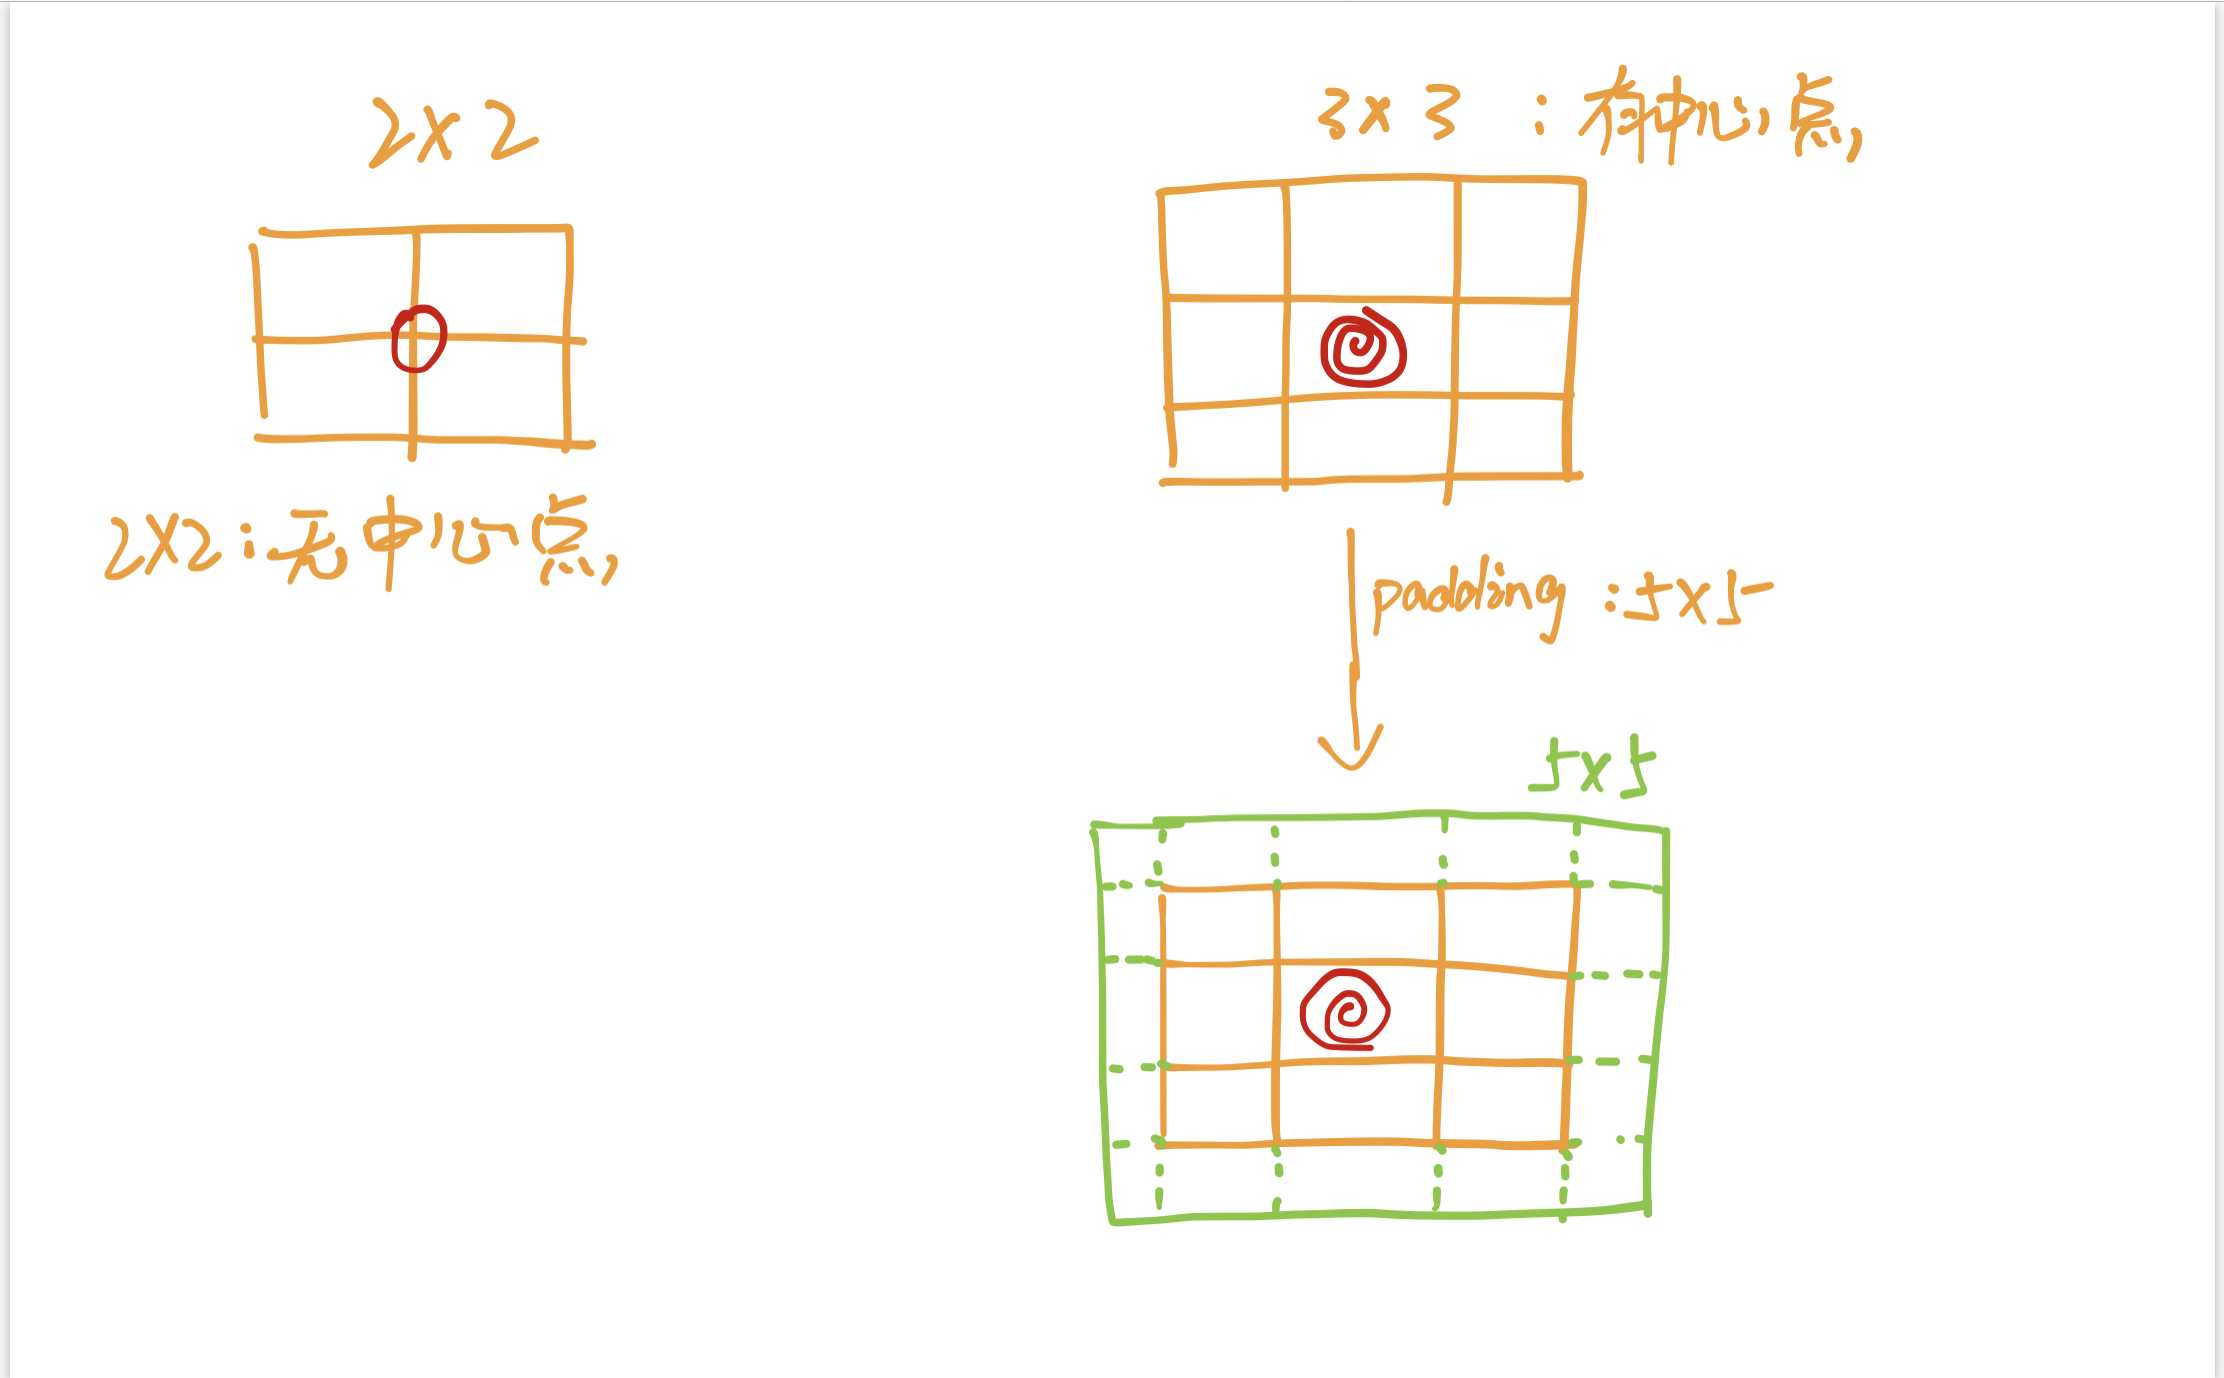 2x2
2x2:无中心点
3x3:有中心点
padding:5x5
5x5